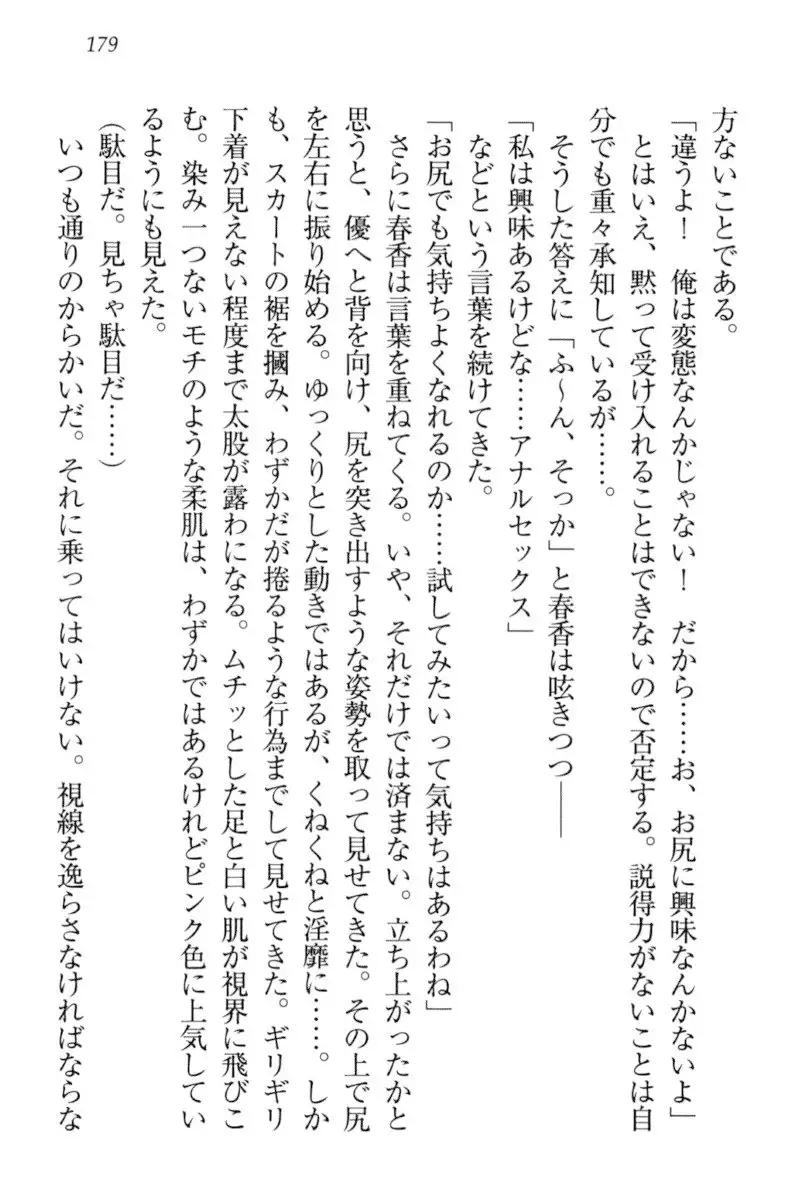 179
方ないことである。
「違うよ！　俺は変態なんかじゃない！　だから……お、お尻に興味なんかないよ」
とはいえ、黙って受け入れることはできないので否定する。説得力がないことは自
分でも重々承知しているが……。
そうした答えに「ふ～ん、そっか」と春香は呟きつつ――
「私は興味あるけどな……アナルセックス」
などという言葉を続けてきた。
「お尻でも気持ちよくなれるのか……試してみたいって気持ちはあるわね」
さらに春香は言葉を重ねてくる。いや、それだけでは済まない。立ち上がったかと
思うと、優へと背を向け、尻を突き出すような姿勢を取って見せてきた。その上で尻
を左右に振り始める。ゆっくりとした動きではあるが、くねくねと淫靡に……。しか
も、スカートの裾を摑み、わずかだが捲るような行為までして見せてきた。ギリギリ
下着が見えない程度まで太股が露わになる。ムチッとした足と白い肌が視界に飛びこ
む。染み一つないモチのような柔肌は、わずかではあるけれどピンク色に上気してい
るようにも見えた。
（駄目だ。見ちゃ駄目だ……）
いつも通りのからかいだ。それに乗ってはいけない。視線を逸らさなければならな